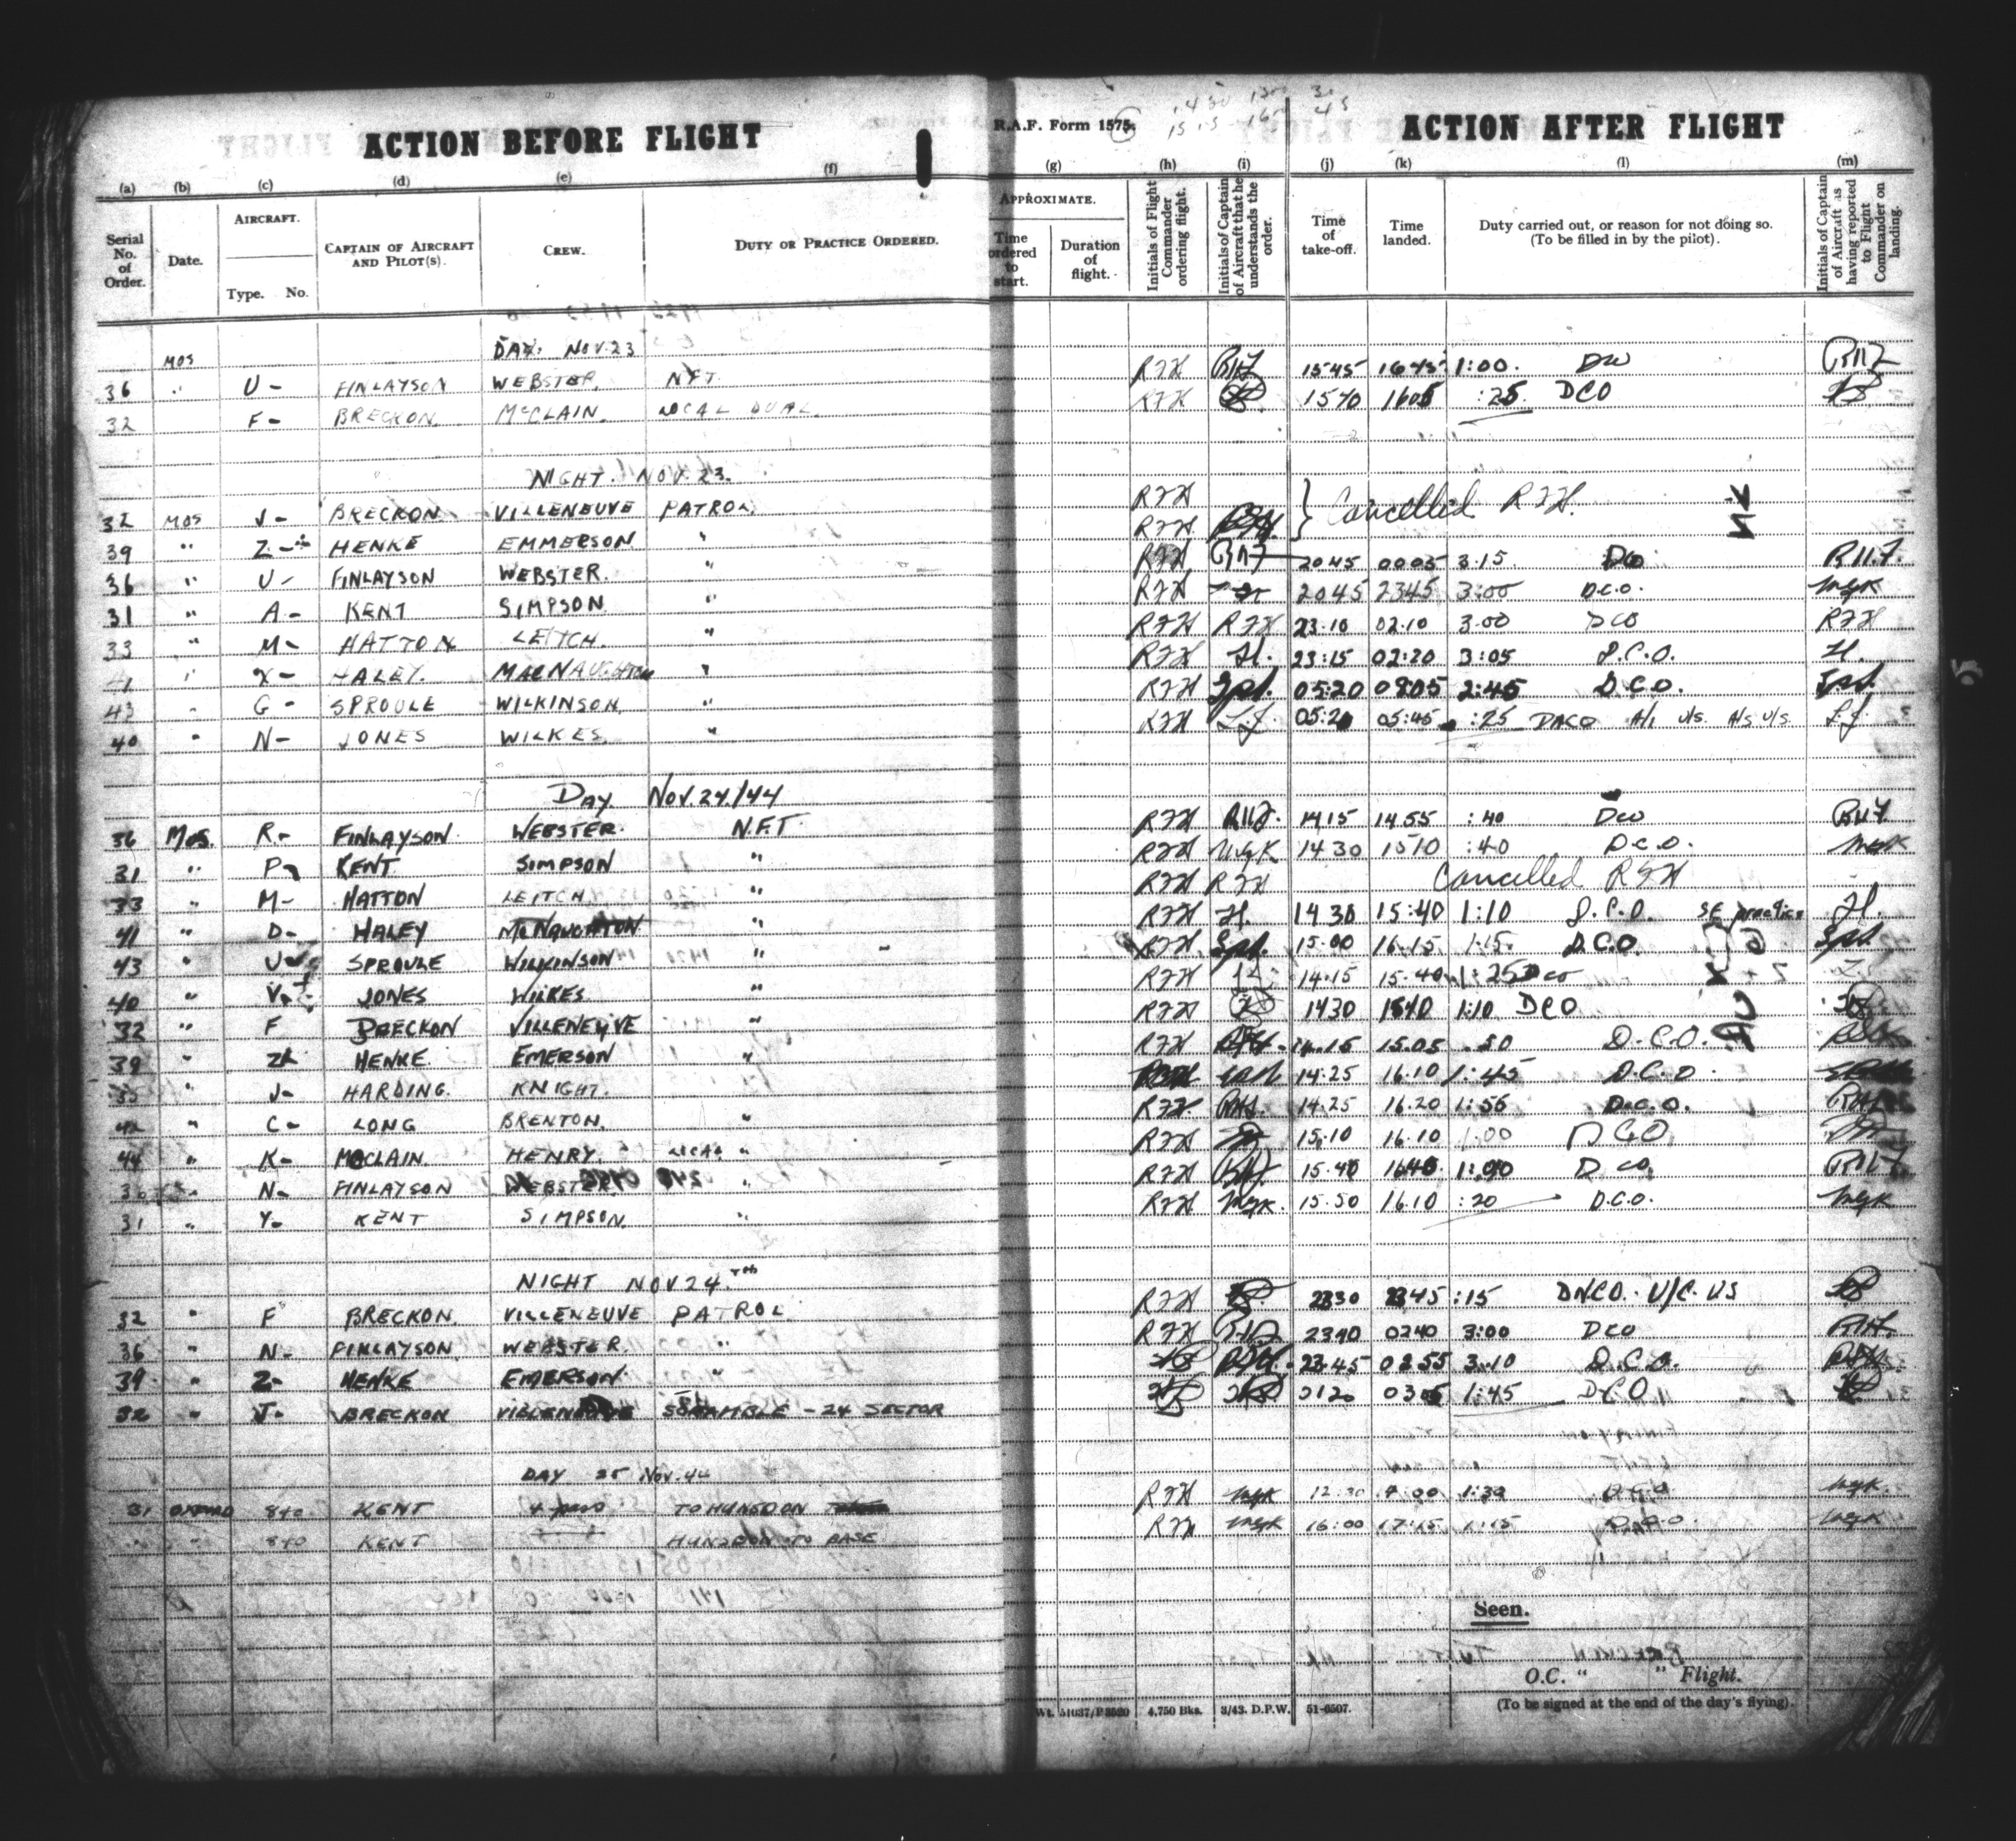 R.A.F. Form 1575.
ACTION BEFORE FLIGHT
ACTION AFTER FLIGHT
(a) (b) (c) (d) (e) (f) (g) (h) (i) (j) (k) (l) (m)
Serial No. of Order.
Date.
AIRCRAFT.
Type. No.
CAPTAIN OF AIRCRAFT AND PILOT(S).
CREW.
DUTY OR PRACTICE ORDERED.
APPROXIMATE.
Time ordered to start.
Duration of flight.
Initials of Flight Commander ordering flight.
Initials of Captain of Aircraft that he understands the order.
Time of take-off.
Time landed.
Duty carried out, or reason for not doing so. (To be filled in by the pilot).
Initials of Captain of Aircraft as having reported to Flight Commander on landing.
DAY: NOV. 23
MOS
36 " U - FINLAYSON WEBSTER. NFT. 1545 1645 1:00. DCO
32 F - BRECKON. McCLAIN. LOCAL DUAL. 1540 1605 :25 DCO
NIGHT. NOV. 23.
32 MOS J - BRECKON VILLENEUVE PATROL. RFH Cancelled RFH.
39 " Z - HENKE EMMERSON " RFH
36 " U - FINLAYSON WEBSTER. " RFH 2045 0005 3.15 DCO
31 " A - KENT SIMPSON " RFH 2045 2345 3:00 D.C.O. WGK
33 " M - HATTON LEITCH. " RFH RFH 23.10 02.10 3.00 DCO RFH
41 " X - HALEY. MACNAUGHTON " RFH H. 23:15 02:20 3:05 D.C.O. H.
43 " G - SPROULE WILKINSON. " RFH 05:20 0805 2:45 D.C.O.
40 " N - JONES WILKES " RFH L.J. 05:20 05:45 :25 DNCO A/I U/S. A/S U/S L.J.
DAY NOV. 24/44
36 MOS. R - FINLAYSON. WEBSTER. N.F.T. RFH 1415 14.55 :40 DCO
31 " P KENT SIMPSON " RFH WGK 14.30 1510 :40 D.C.O. WGK
33 " M - HATTON LEITCH " RFH RFH Cancelled RFH
41 " D - HALEY McNAUGHTON " RFH H. 14 30 15:40 1:10 D.C.O. SE practice H.
43 " U SPROULE WILKINSON " RFH 15.00 16.15 1:15. D.C.O
40 " V JONES WILKES " RFH 14.15 15.40 1:25 DCO
32 " F BRECKON VILLENEUVE " RFH 1430 1540 1:10 DCO
39 " Z HENKE EMERSON " RFH 14.15 15.05 .50 D.C.O.
35 " J - HARDING. KNIGHT. 14.25 16.10 1:45 D.C.O.
42 " C - LONG BRENTON. " RFH 14.25 16.20 1:55 D.C.O.
44 " K - McCLAIN. HENRY. LOCAL " RFH 15.10 16.10 1:00 DCO
36 N - FINLAYSON WEBSTER " RFH 15.40 1640 1:00 DCO
31 " Y - KENT SIMPSON. " RFH WGK. 15.50 16.10 :20 D.C.O. WGK
NIGHT NOV 24.TH
32 " F BRECKON. VILLENEUVE PATROL. RFH 2330 2345 :15 DNCO. U/C. US
36 " N - FINLAYSON. WEBSTER. " RFH 2340 0240 3:00 DCO
39 " Z - HENKE EMERSON " 23.45 0255 3.10 D.C.O.
32 " J - BRECKON VILLENEUVE SCRAMBLE - 24 SECTOR 0120 0305 1:45 D.C.O
DAY 25 NOV. 44
31 OXFORD 840 KENT TO HUNSDON RFH WGK 12:30 1:30 D.C.O WGK.
" " 840 KENT HUNSDON TO BASE RFH WGK 16:00 17:15 1:15 D.C.O. WGK
Seen.
O.C. " " Flight.
(To be signed at the end of the day's flying).
Wt. 51037/P3520 4,750 Bks. 3/43. D.P.W. 51-6507.